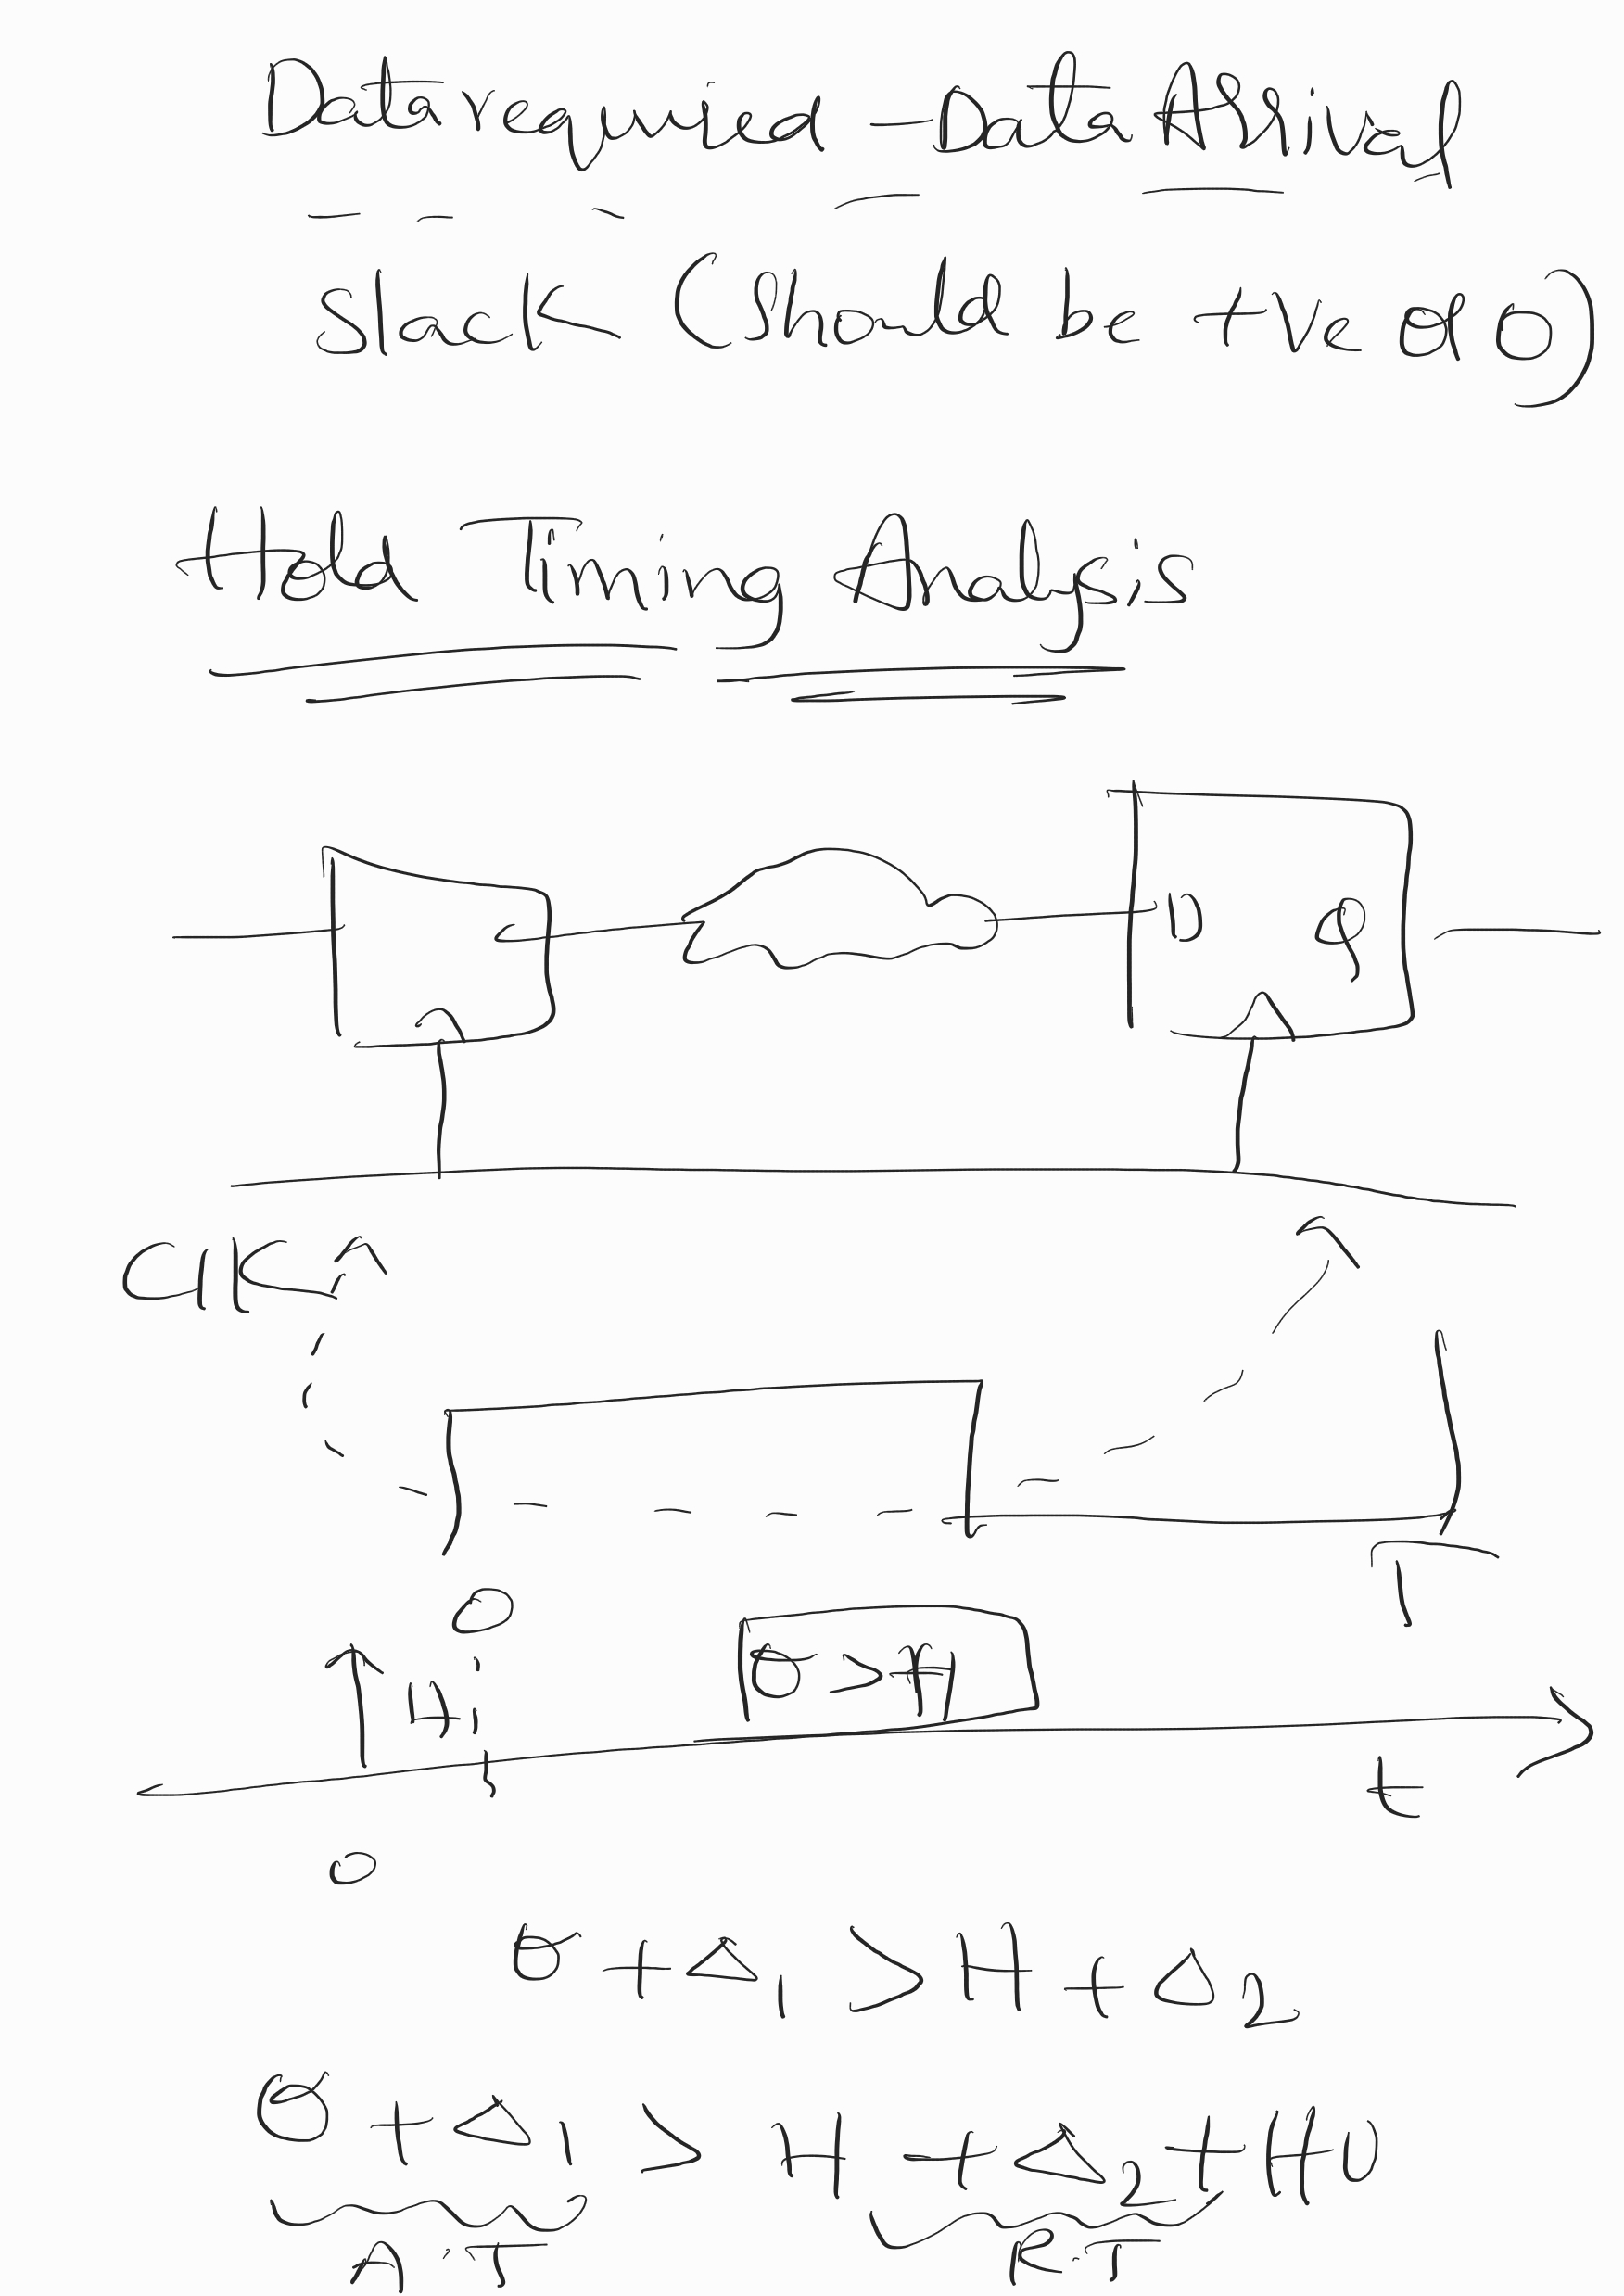 Data required - Data Arrival
Slack (Should be +ve or 0)
Hold Timing Analysis
D Q
Clk
0 T
H θ > H
t
0
θ + Δ1 > H + Δ2
θ + Δ1 > H + Δ2 + HU
A.T R.T